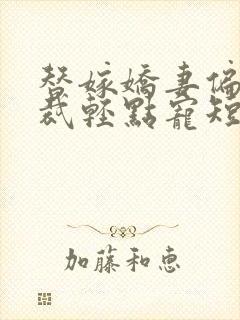 替嫁嬌妻偏
裁輕點寵短
加藤和恵